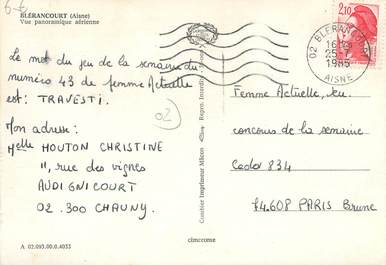 6-€
BLÉRANCOURT (Aisne)
Vue panoramique aérienne
Le mot du jeu de la semaine du
numéro 43 de femme Actuelle
est : TRAVESTI.
02
Mon adresse :
Melle HOUTON CHRISTINE
11, rue des vignes
AUDIGNICOURT
02.300 CHAUNY.
A 02.093.00.0.4033
Combier Imprimeur Mâcon
Repro. Interdite
cimccome
2,10
02 BLERANCOURT
16H
25-7
1985
AISNE
Femme Actuelle, jeu
concours de la semaine
Cedex 834
74.608 PARIS Brune